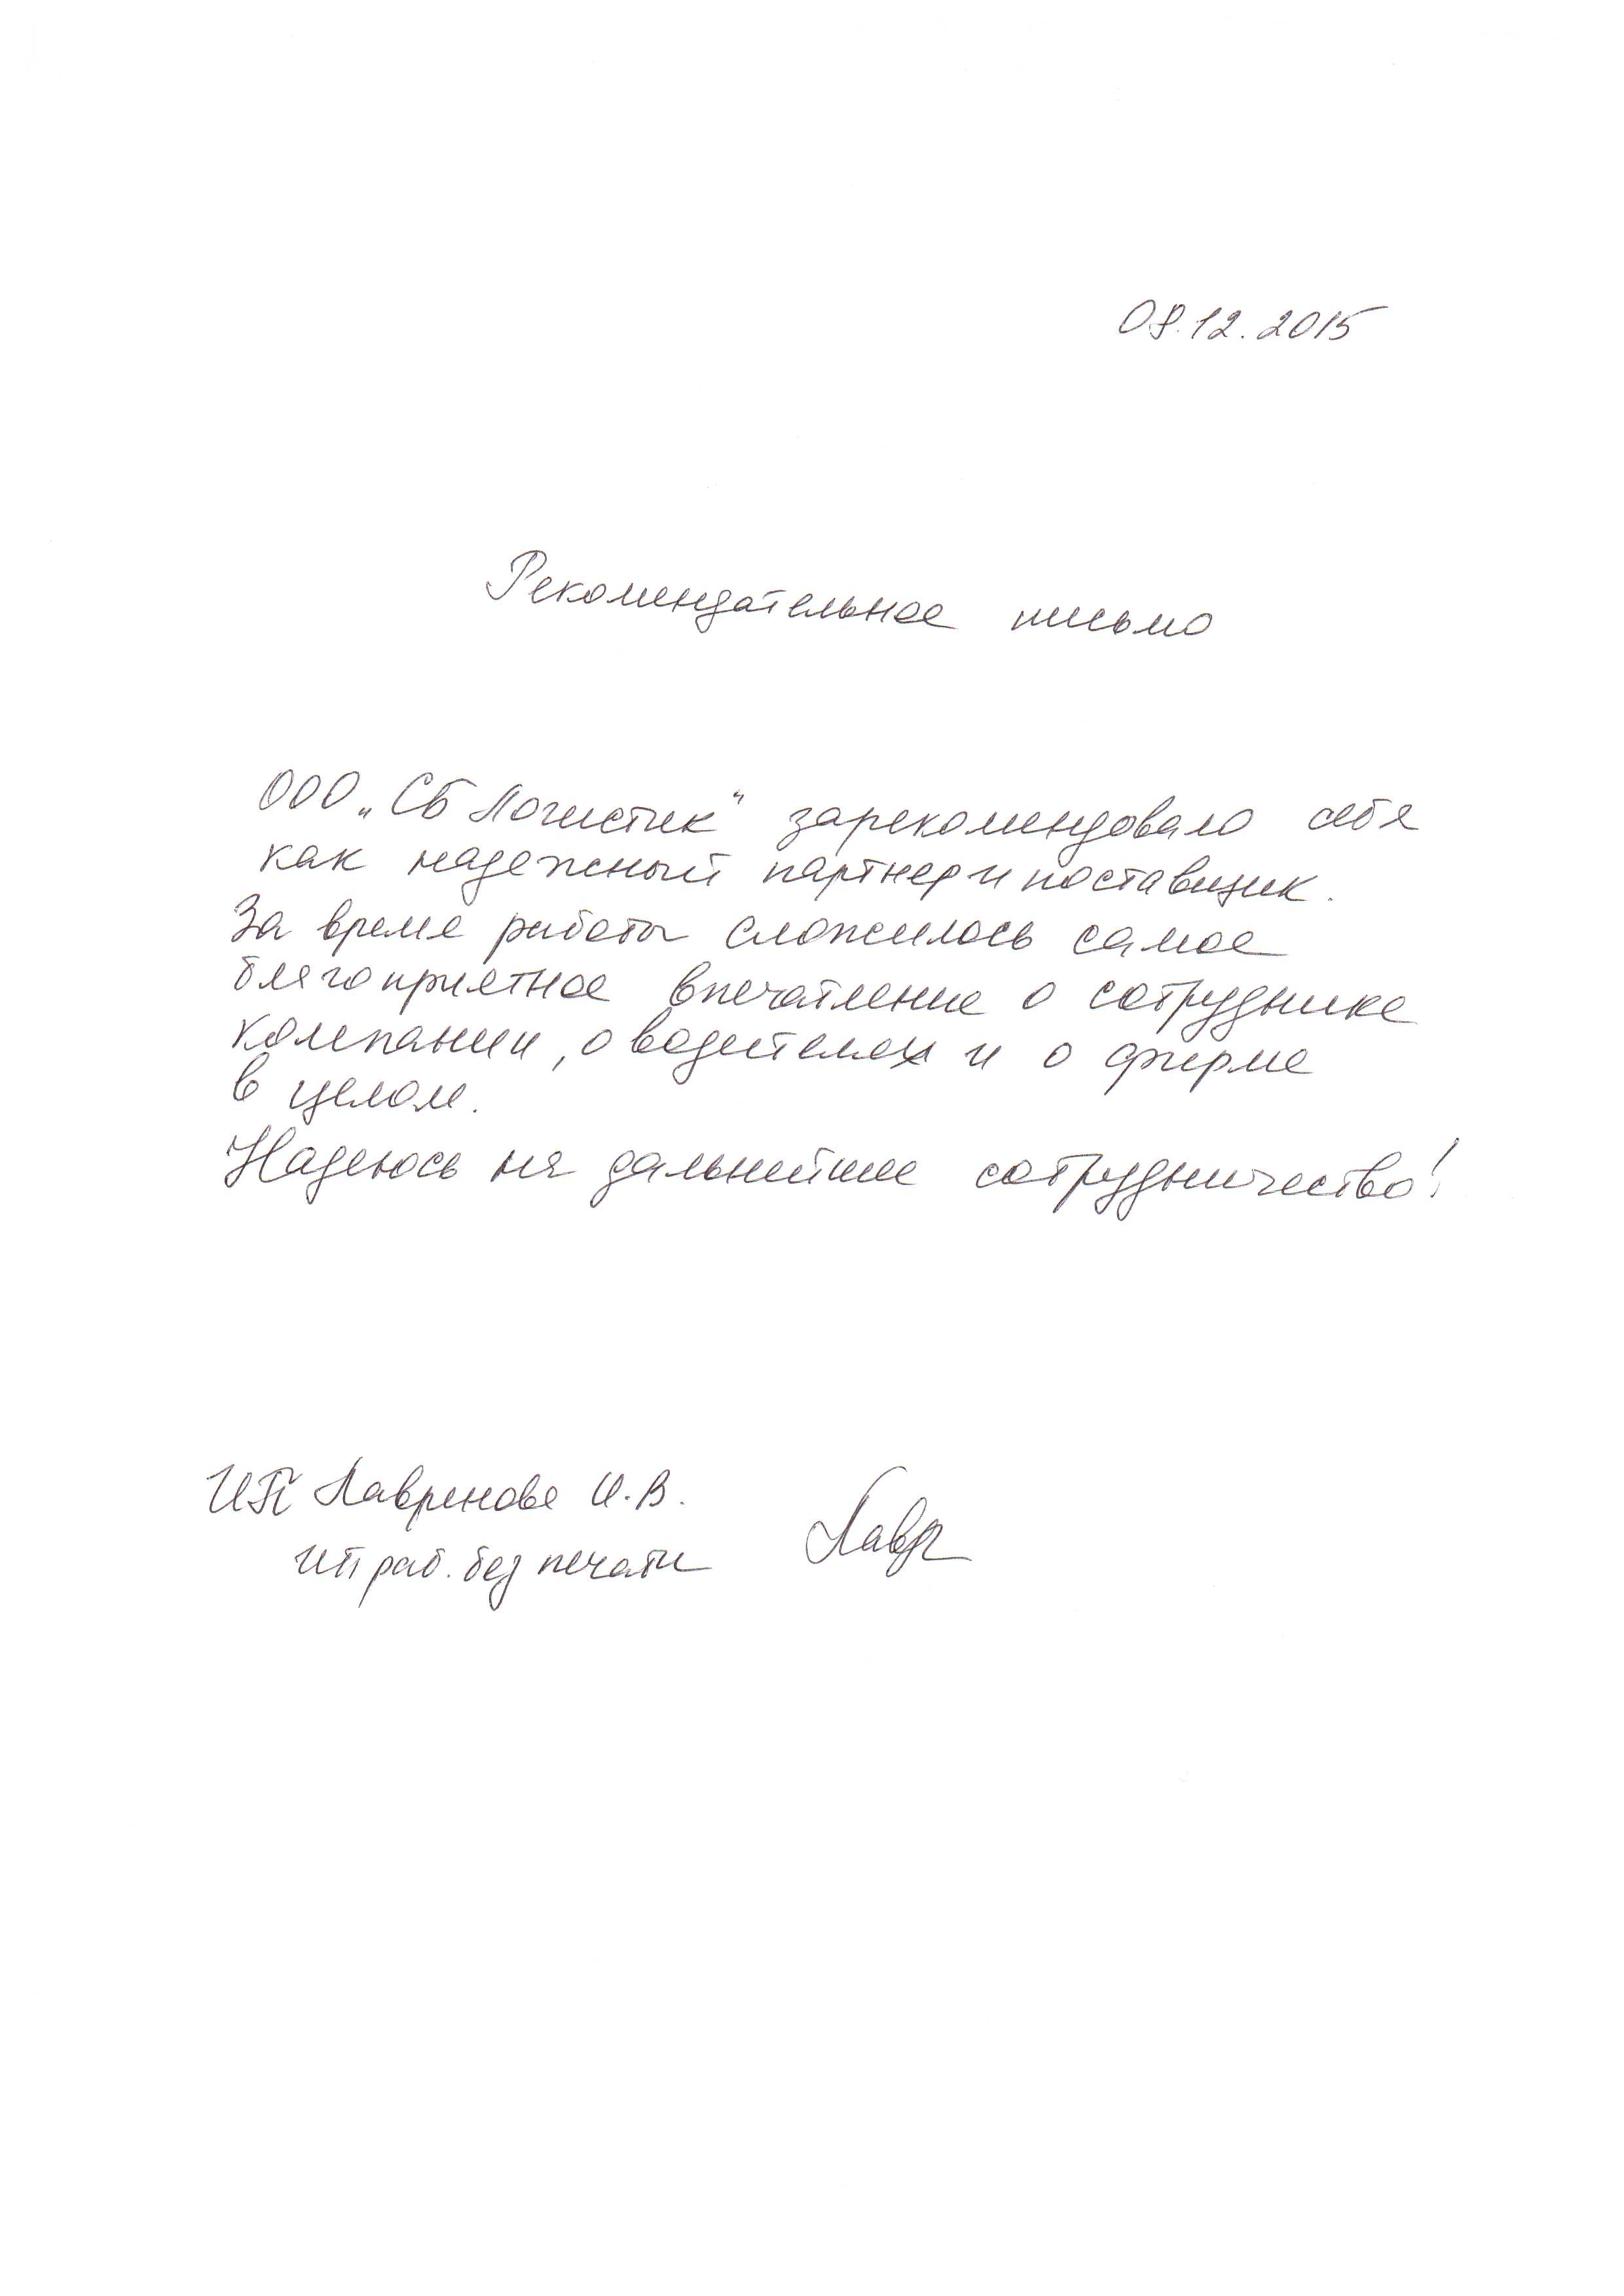 08.12.2015
Рекомендательное письмо
ООО „СБ Логистик“ зарекомендовало себя
как надежный партнер и поставщик.
За время работы сложилось самое
благоприятное впечатление о сотруднике
компании, о водителях и о фирме
в целом.
Надеюсь на дальнейшее сотрудничество!
ИП Лавренова И.В.
ИП раб. без печати
Лавр